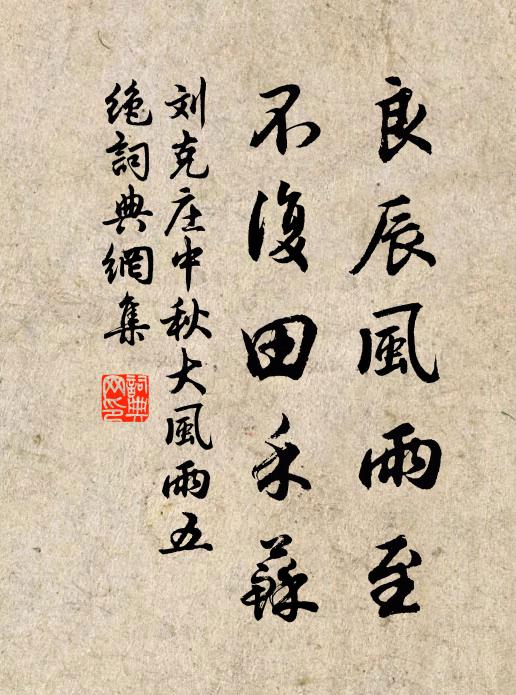 良辰風雨至
不復田禾蘇
刘克庄中秋大風雨五
绝詞典網集
詞典网印